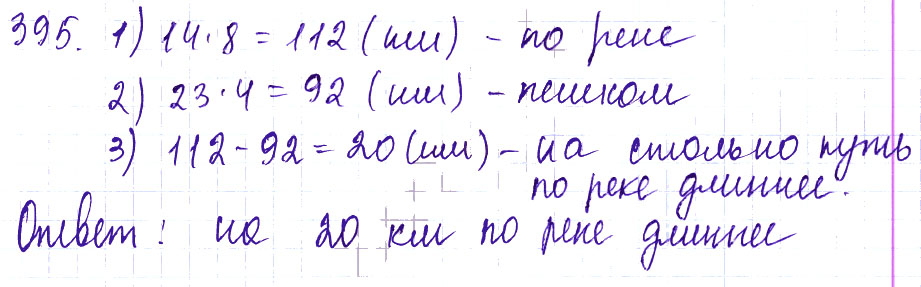 395. 1) 14·8 = 112 (км) – по реке
2) 23·4 = 92 (км) – пешком
3) 112 - 92 = 20 (км) – на столько путь
по реке длиннее.
Ответ: на 20 км по реке длиннее